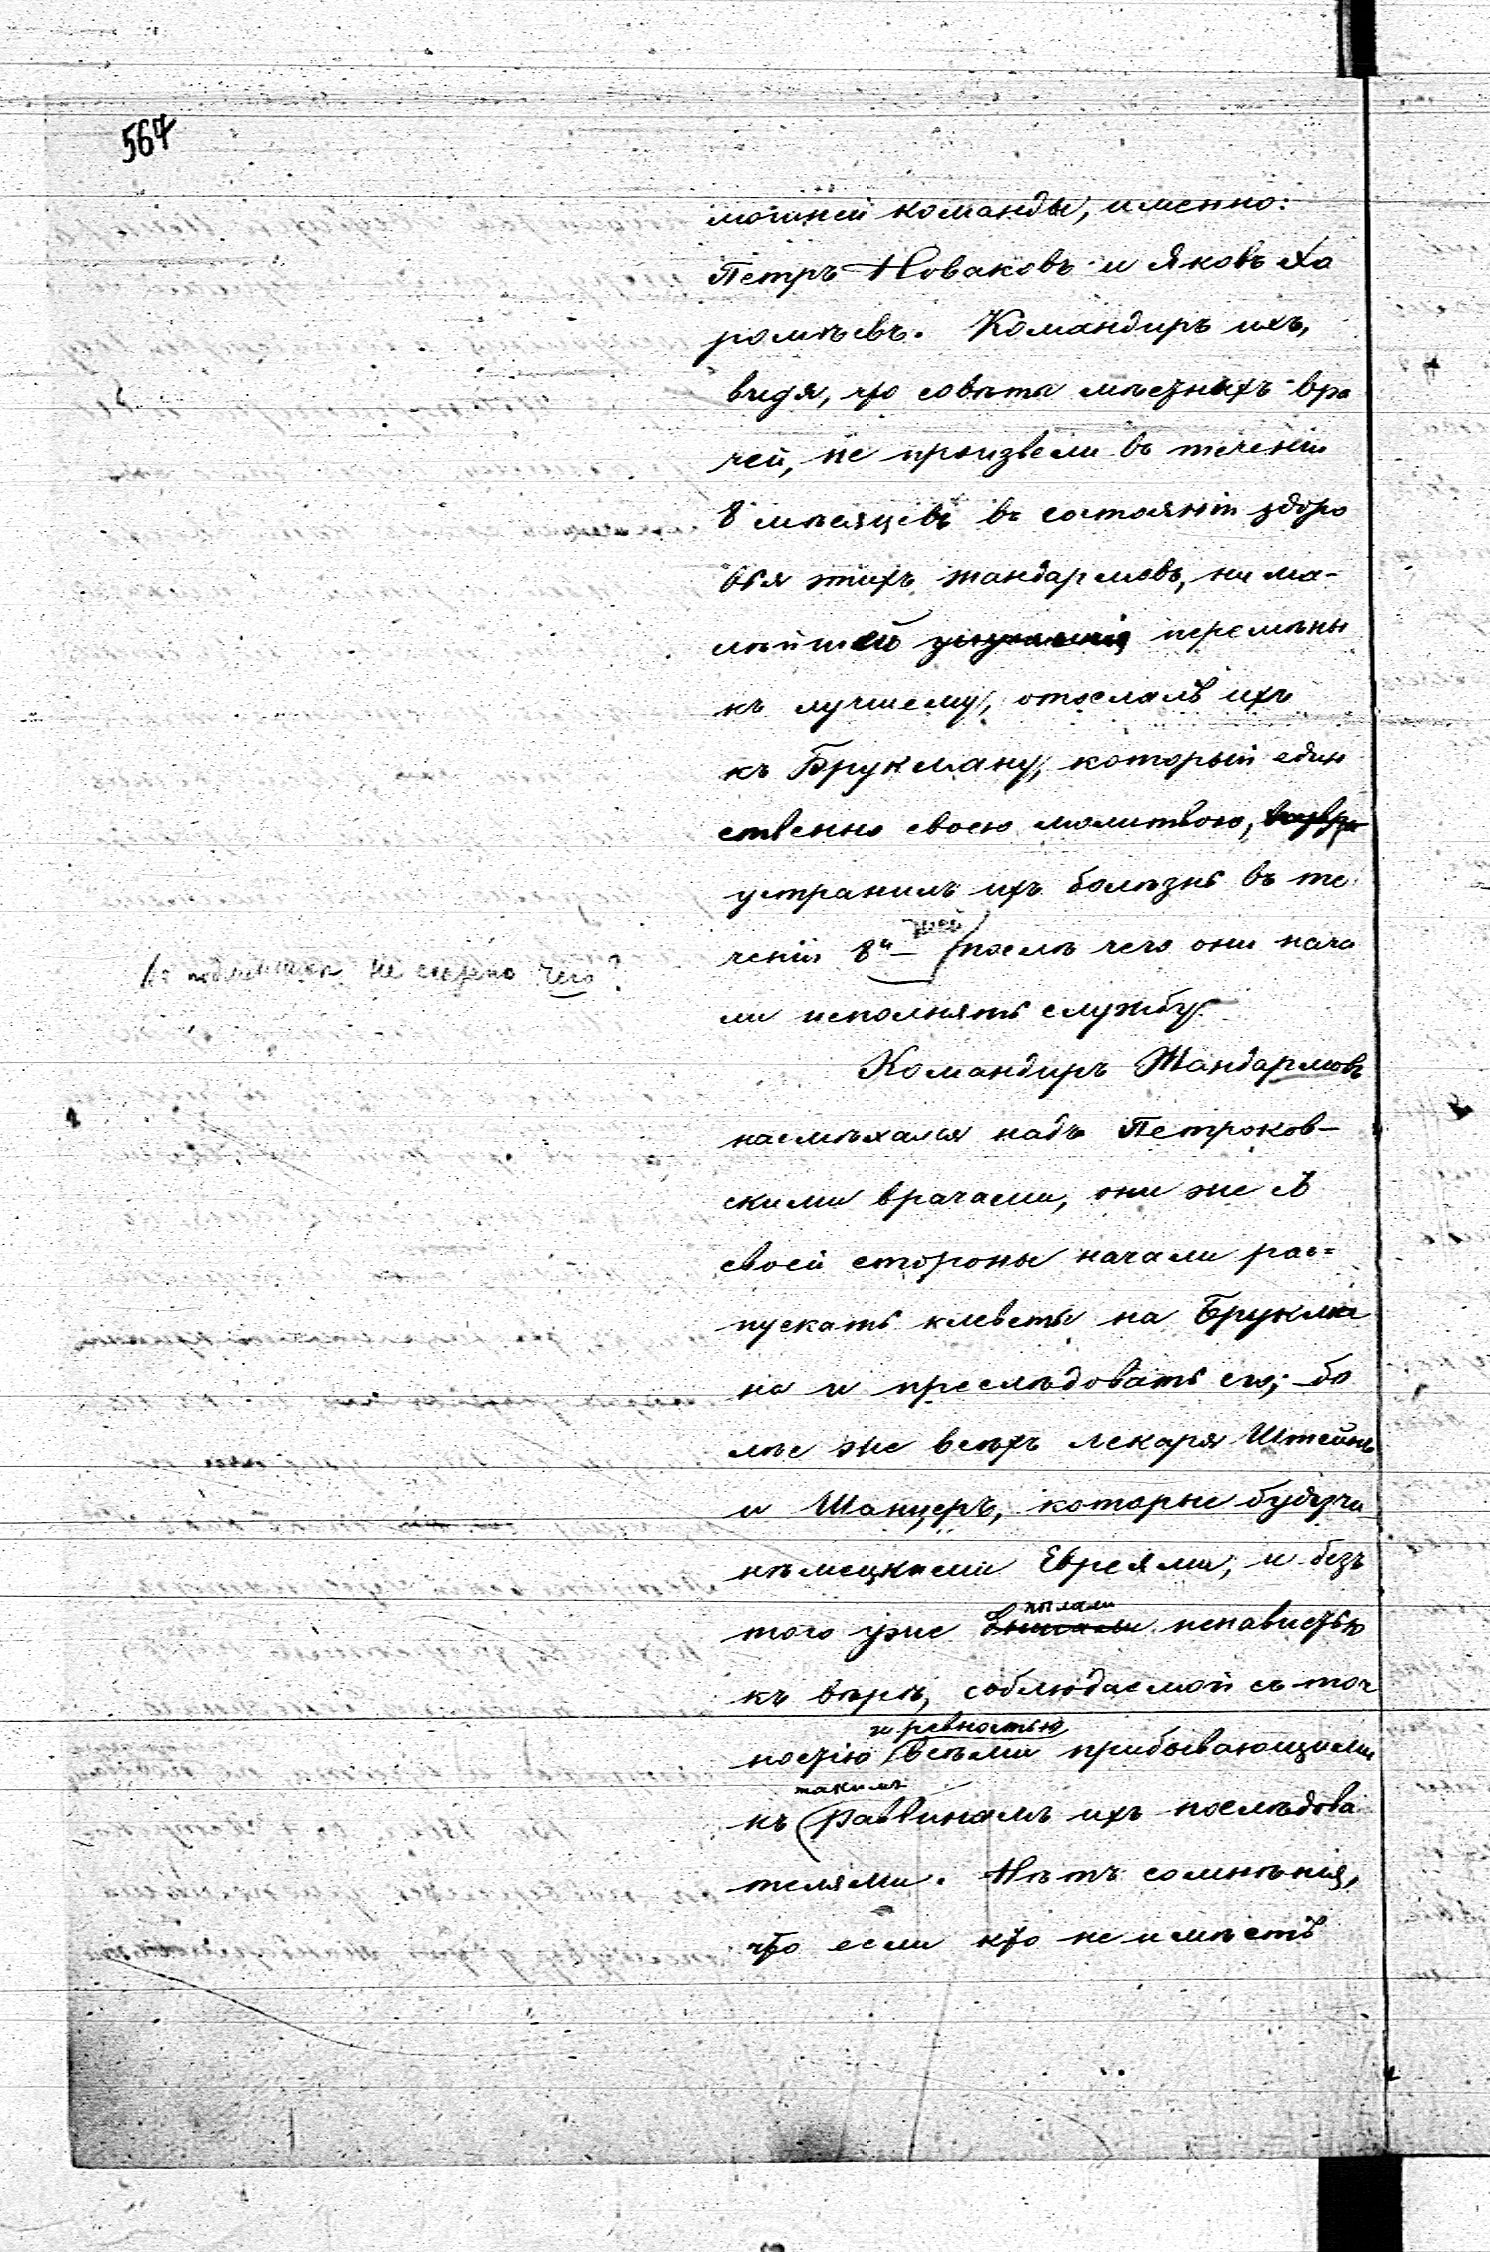 567
мошней команды, именно:
Петръ Новаковъ и Яковъ Ха
ромѣевъ. Командиръ ихъ,
видя, что совѣты мѣстныхъ вра
чей, не произвели въ теченіи
8 мѣсяцевъ въ состояніи здоро
вья этихъ жандармовъ, ни ма-
лѣйшей перемѣны
къ лучшему, отослалъ ихъ
къ Брукману, который един
ственно своею молитвою,
устранилъ ихъ болѣзнь въ те
ченіи 8и дней послѣ чего они нача
Въ подлинникѣ не сказано чего?
ли исполнять службу.
Командиръ Жандармовъ
насмѣхался надъ Петроков-
скими врачами, они же съ
своей стороны начали рас=
пускать клеветы на Брукма
на и преслѣдовать его; бо
лѣе же всѣхъ лекаря Штейнъ
и Шанцеръ, которые будучи
нѣмецкими Евреями, и безъ
того уже пылали ненавистью
къ вѣрѣ, соблюдаемой съ точ
ностію и ревностью всѣми прибывающими
къ такимъ раввинамъ ихъ послѣдова
телями. Нѣтъ сомнѣнія,
что если кто не имѣетъ